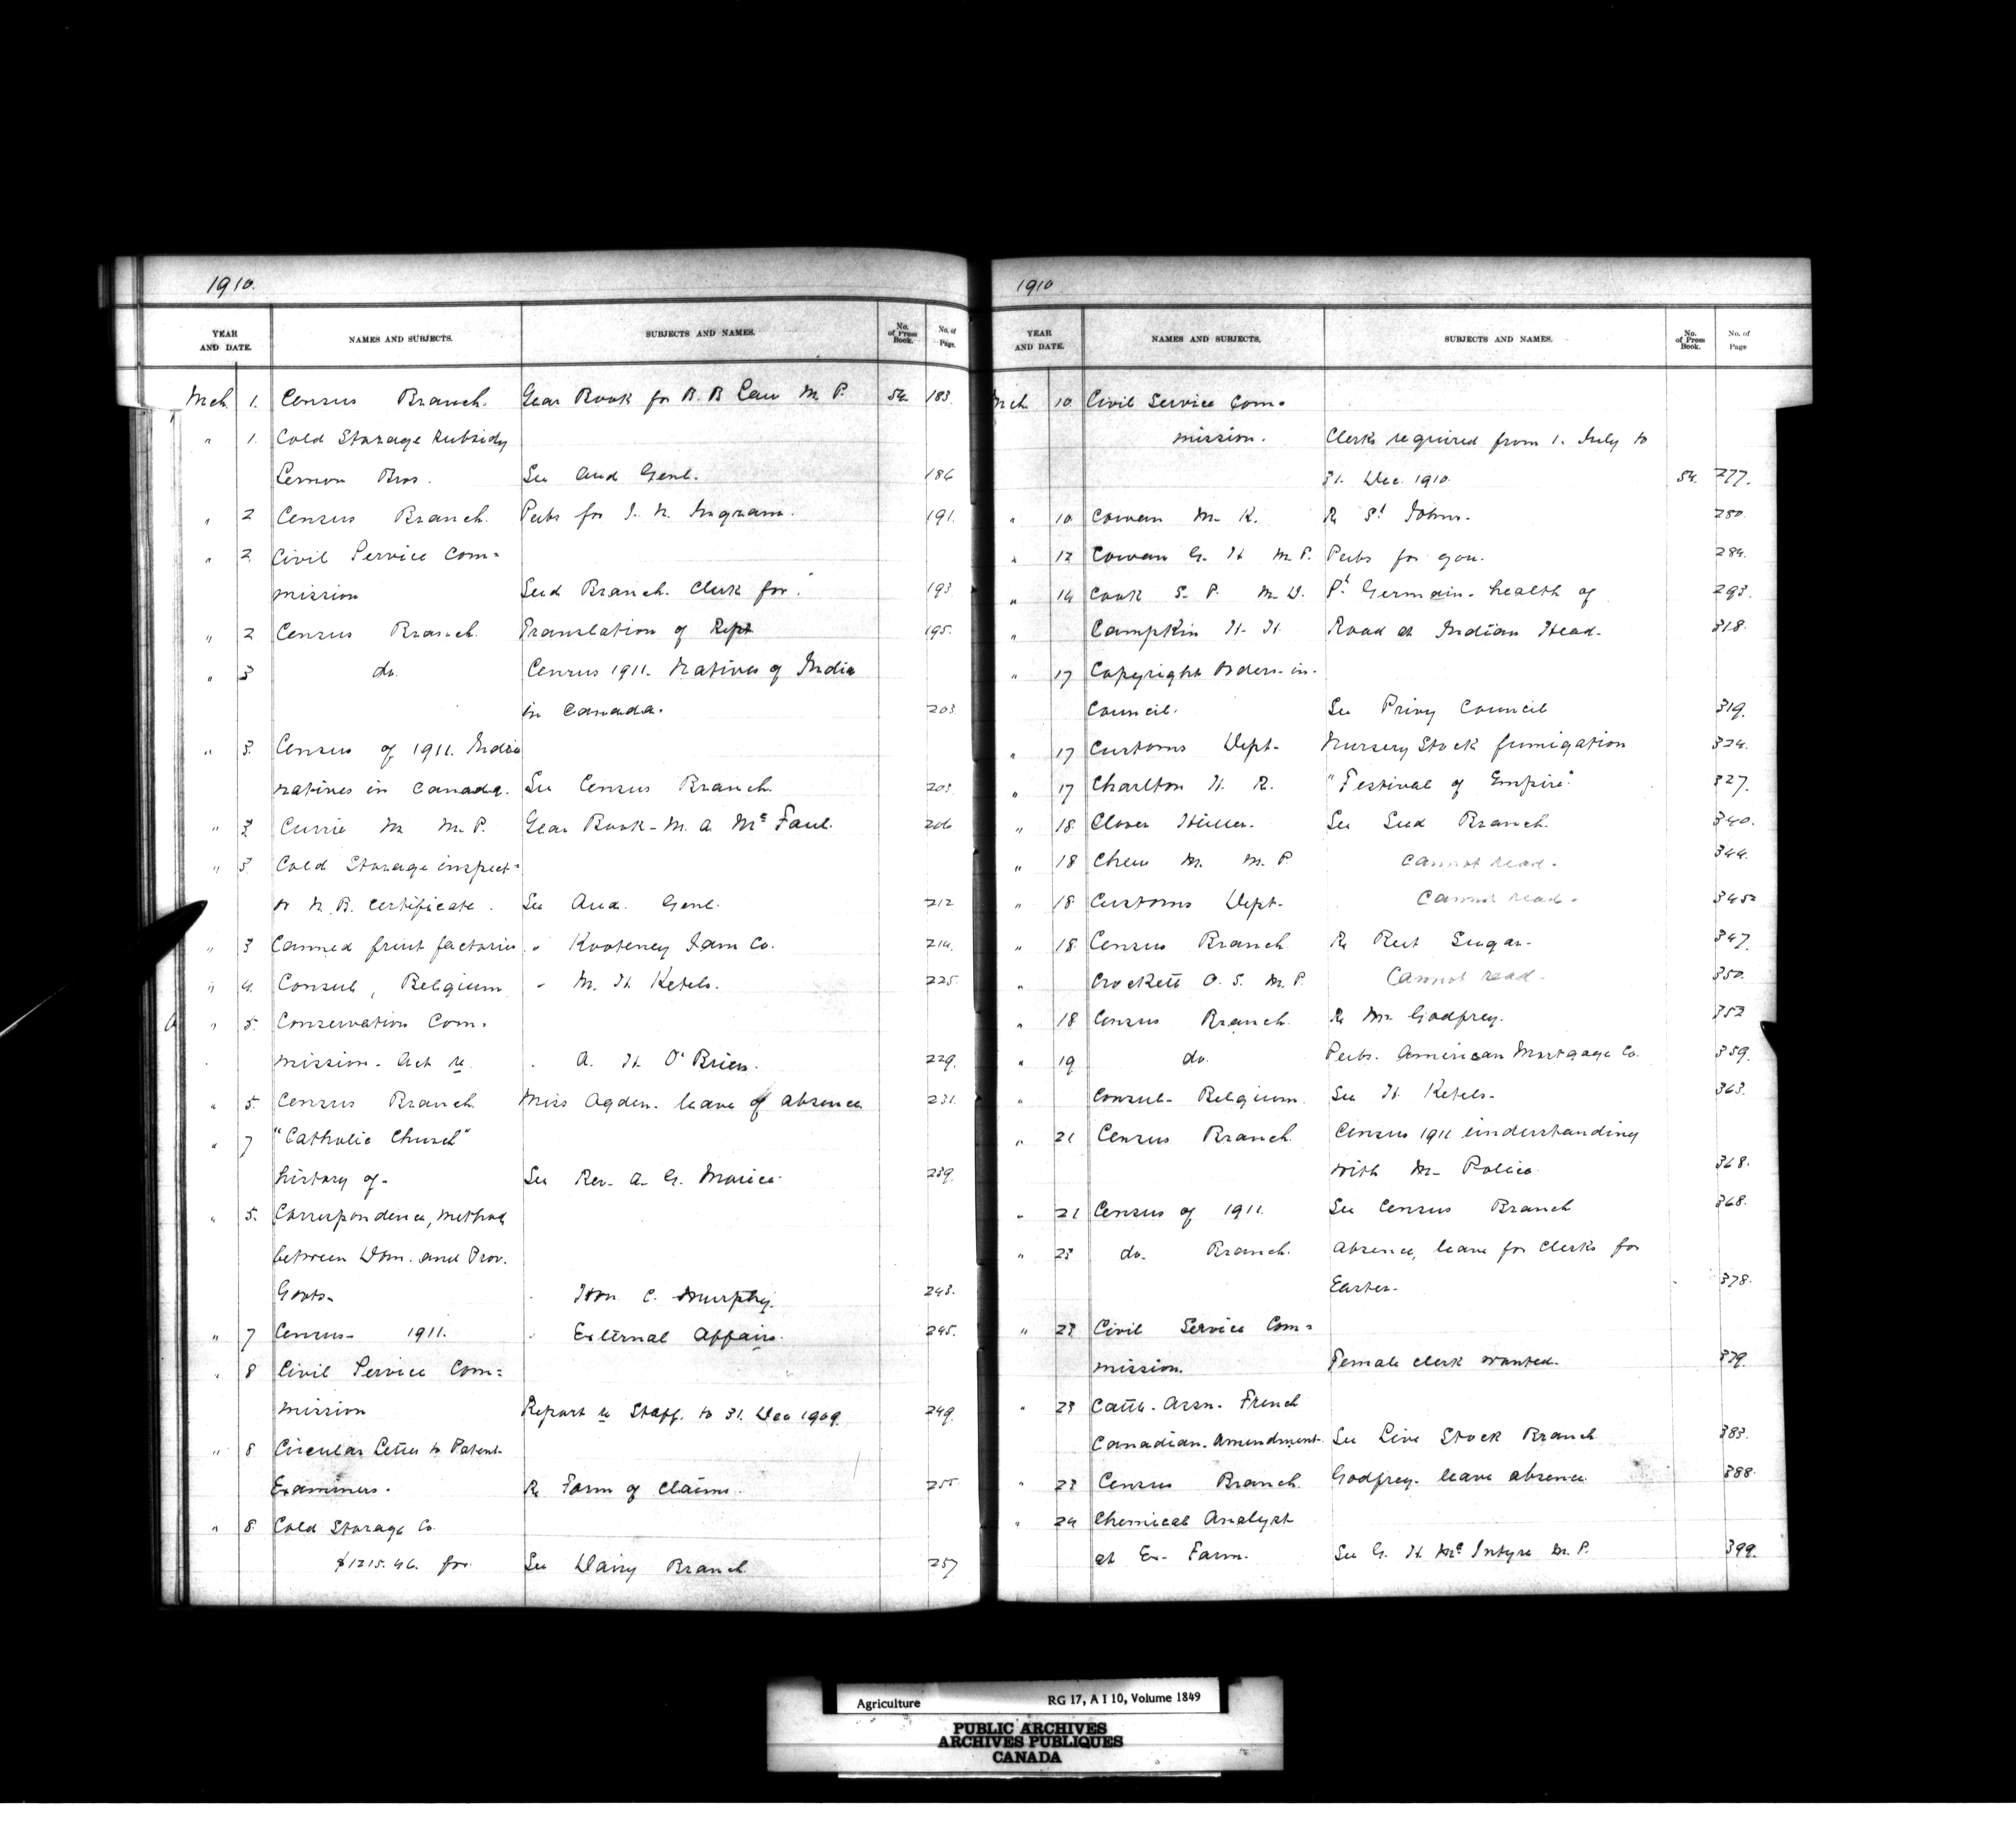 1910.
YEAR AND DATE. NAMES AND SUBJECTS. SUBJECTS AND NAMES. No. of Press Book. No. of Page.
Mch 1. Census Branch. Year Book for B. B Law M. P. 54. 183.
" 1. Cold Storage Subsidy
Lemon Bros. See Aud Genl. 186
" 2 Census Branch. Pubs for J. N. Ingram. 191.
" 2 Civil Service Com=
mission Seed Branch. Clerk for. 193
" 2 Census Branch. Translation of Rept 195.
" 3 do. Census 1911. Natives of India
in Canada. 203.
" 3. Census of 1911. India
natives in Canada. See Census Branch. 203.
" 3 Currie M M. P. Year Book - M. A. McFaul. 206
" 3. Cold Storage inspect=
or N. B. Certificate. See Aud. Genl. 212
" 3 Canned fruit factories " Kooteney Jam Co. 214.
" 4. Consul, Belgium " M. H. Ketels. 225.
" 5. Conservation Com.
mission - Act re " A. H. O'Brien. 229.
" 5. Census Branch Miss Ogden - leave of absence 231.
" 7 "Catholic Church"
history of - See Rev. A. G. Morice. 239.
" 5. Correspondence, method
between Dom. and Prov.
Govts - " Hon C. Murphy. 243.
" 7 Census - 1911. " External Affairs. 245.
" 8 Civil Service Com=
mission Report re Staff. to 31. Dec 1909 249.
" 8 Circular Letter to Patent
Examiners. Re Form of Claims. 255
" 8. Cold Storage Co.
$1215.46. for See Dairy Branch 257
1910
YEAR AND DATE. NAMES AND SUBJECTS. SUBJECTS AND NAMES. No. of Press Book. No. of Page
Mch 10 Civil Service Com=
mission. Clerks required from 1. July to
31. Dec. 1910. 54. 277.
" 10. Cowan M. K. Re St Johns. 280.
" 12 Cowan G. H M. P. Pubs for you. 284.
" 14 Cook S. P. M. D. P. Germain - health of 293.
" Campkin H. H. Road at Indian Head. 318.
" 17 Copyright Orders-in-
Council. See Privy Council 319.
" 17 Customs Dept - Nursery Stock fumigation 324.
" 17 Charlton H. R. "Festival of Empire" 327.
" 18. Clover Huller. See Seed Branch. 340.
" 18 Chew M. M. P Cannot read. 344.
" 18 Customs Dept - Cannot read. 345
" 18 Census Branch Re Beet Sugar. 347.
" Crockett O. S. M. P. Cannot read. 350.
" 18 Census Branch. Re Mr Godfrey. 352
" 19 do. Pubs. American Mortgage Co. 359.
" Consul - Belgium. See H. Ketels. 363.
" 21 Census Branch. Census 1911 understanding
with M - Police 368.
" 21 Census of 1911. See Census Branch 368.
" 23 do. Branch. Absence, leave for clerks for
Easter. 378.
" 23 Civil Service Com=
mission. Female clerk wanted. 379.
" 23 Cattle Assn. French
Canadian. Amendment. See Live Stock Branch 383.
" 23 Census Branch. Godfrey. leave absence 388.
" 24 Chemical Analyst
at Ex - Farm. See G. H. McIntyre M. P. 399.
Agriculture RG 17, A I 10, Volume 1849
PUBLIC ARCHIVES
ARCHIVES PUBLIQUES
CANADA